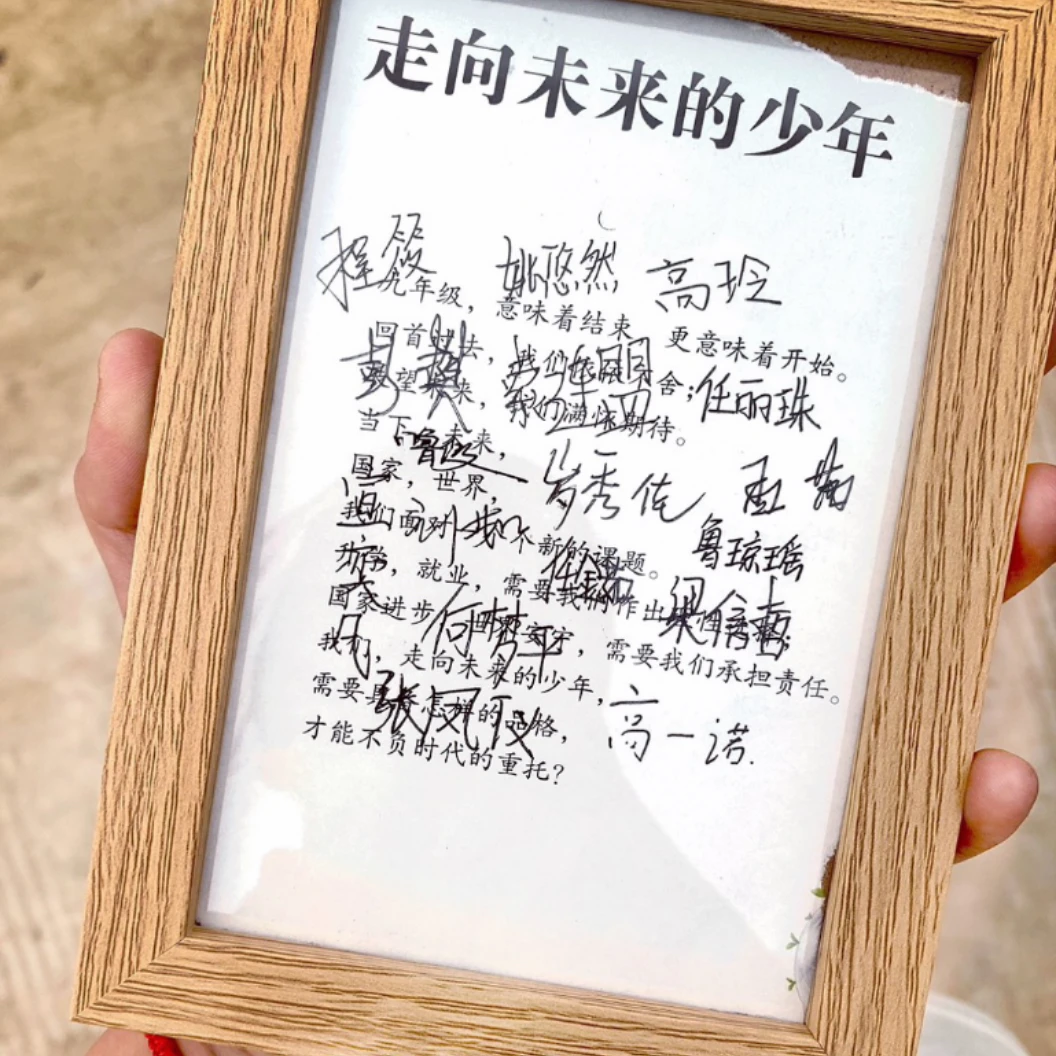 走向未来的少年
程筱 姚悠然 高玲
九年级，意味着结束，更意味着开始。
回首过去，我们
望未来，我们满怀期待。
任丽珠
当下，未来，
国家，世界，
岁秀佐
我们面对 个新的课题。
鲁琼瑶
升学，就业，需要我们作出
国家进步， 安宁，需要我们承担责任。
何梦平
我们，走向未来的少年，
需要具 怎样的品格，
张凤仪
高一诺.
才能不负时代的重托？